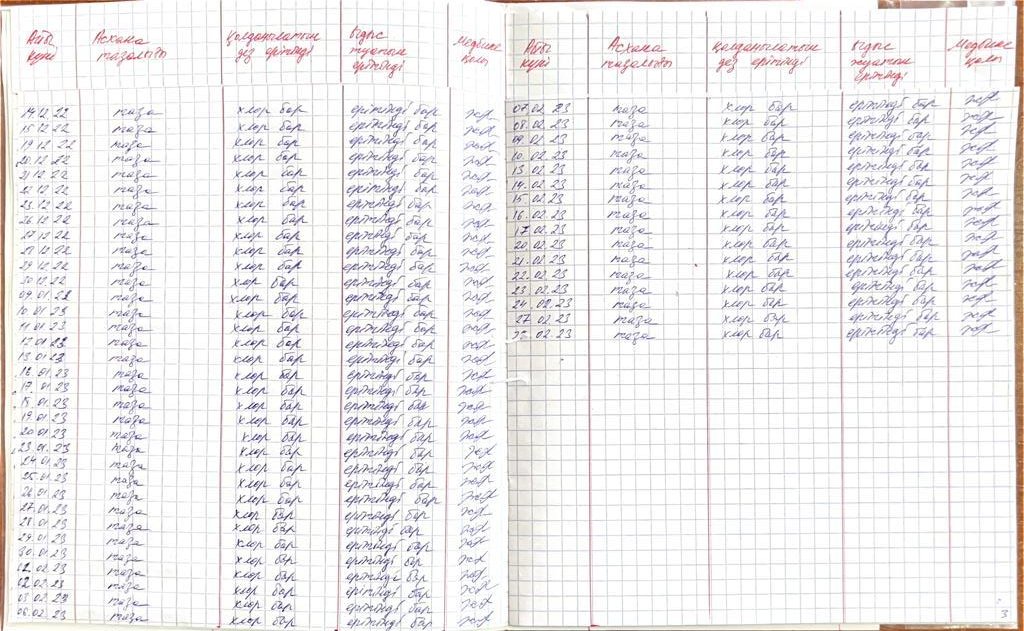 Айы Асхана Қолданылатын Ыдыс Медбике
күні тазалығы дез ерітінді жуатын қолы
ерітінді
14.12.22 таза хлор бар ерітінді бар
15.12.22 таза хлор бар ерітінді бар
19.12.22 таза хлор бар ерітінді бар
20.12.22 таза хлор бар ерітінді бар
21.12.22 таза хлор бар ерітінді бар
22.12.22 таза хлор бар ерітінді бар
23.12.22 таза хлор бар ерітінді бар
26.12.22 таза хлор бар ерітінді бар
27.12.22 таза хлор бар ерітінді бар
28.12.22 таза хлор бар ерітінді бар
29.12.22 таза хлор бар ерітінді бар
30.12.22 таза хлор бар ерітінді бар
09.01.23 таза хлор бар ерітінді бар
10.01.23 таза хлор бар ерітінді бар
11.01.23 таза хлор бар ерітінді бар
12.01.23 таза хлор бар ерітінді бар
13.01.23 таза хлор бар ерітінді бар
16.01.23 таза хлор бар ерітінді бар
17.01.23 таза хлор бар ерітінді бар
18.01.23 таза хлор бар ерітінді бар
19.01.23 таза хлор бар ерітінді бар
20.01.23 таза хлор бар ерітінді бар
23.01.23 таза хлор бар ерітінді бар
24.01.23 таза хлор бар ерітінді бар
25.01.23 таза хлор бар ерітінді бар
26.01.23 таза хлор бар ерітінді бар
27.01.23 таза хлор бар ерітінді бар
28.01.23 таза хлор бар ерітінді бар
29.01.23 таза хлор бар ерітінді бар
30.01.23 таза хлор бар ерітінді бар
01.02.23 таза хлор бар ерітінді бар
02.02.23 таза хлор бар ерітінді бар
03.02.23 таза хлор бар ерітінді бар
06.02.23 таза хлор бар ерітінді бар
Айы Асхана Қолданылатын Ыдыс Медбике
күні тазалығы дез ерітінді жуатын қолы
ерітінді
07.02.23 таза хлор бар ерітінді бар
08.02.23 таза хлор бар ерітінді бар
09.02.23 таза хлор бар ерітінді бар
10.02.23 таза хлор бар ерітінді бар
13.02.23 таза хлор бар ерітінді бар
14.02.23 таза хлор бар ерітінді бар
15.02.23 таза хлор бар ерітінді бар
16.02.23 таза хлор бар ерітінді бар
17.02.23 таза хлор бар ерітінді бар
20.02.23 таза хлор бар ерітінді бар
21.02.23 таза хлор бар ерітінді бар
22.02.23 таза хлор бар ерітінді бар
23.02.23 таза хлор бар ерітінді бар
24.02.23 таза хлор бар ерітінді бар
27.02.23 таза хлор бар ерітінді бар
28.02.23 таза хлор бар ерітінді бар
3